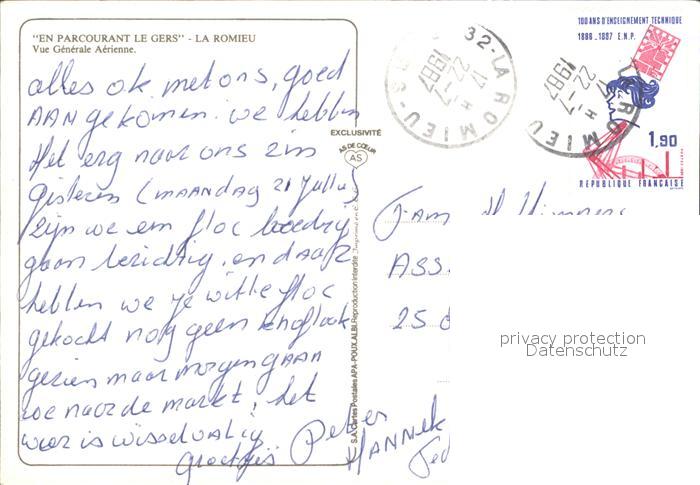 "EN PARCOURANT LE GERS" - LA ROMIEU
Vue Générale Aérienne.
alles ok met ons, goed
AAN gekomen. we hebben
Het erg naar ons zin
Gisteren (MAANDAG 21 Jullu)
zijn we een floc boedry
gaan bezichtig. en daar
hebben we je witte floc
gekocht nog geen knoflook
gezien maar morgen gaan
we naar de markt, het
weer is wisselvallig
Groetjes Peter
HANNEK
EXCLUSIVITÉ
AS DE CŒUR
AS
S.A. Cartes Postales APA-POUX, ALBI. Reproduction Interdite
32-LA ROMIEU
17 H
22-7
1987
32-LA ROMIEU
17 H
22-7
1987
100 ANS D'ENSEIGNEMENT TECHNIQUE
1886-1987 E.N.P.
1,90
REPUBLIQUE FRANÇAISE
Fam
ASS.
25
privacy protection
Datenschutz